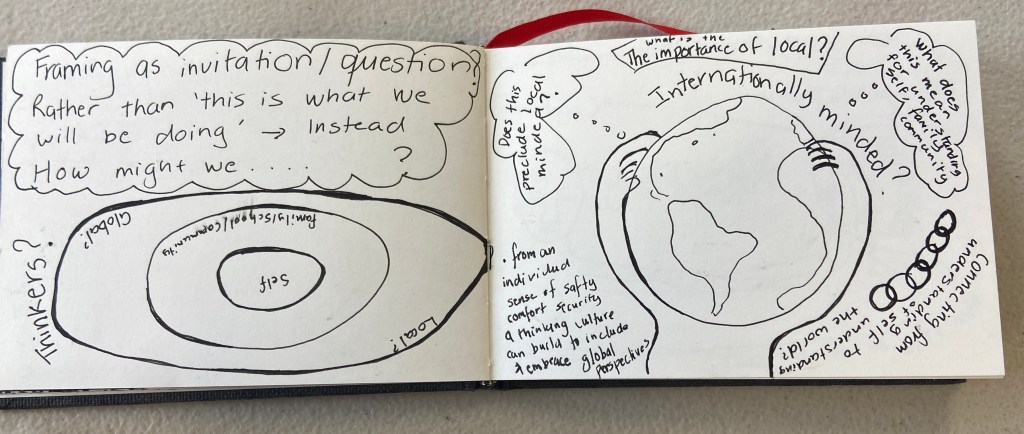 Framing as invitation/question?
Rather than 'this is what we
will be doing' → Instead
How might we . . . . ?
Thinkers?
Global?
family/school/community
Self
Local?
what is the
The importance of local?
Internationally minded?
Does this
preclude local
minded?
What does
this mean
for understanding
self, family
community
• from an
individud
sense of safty
comfort security
a thinking culture
can build to include
& embrace global
perspectives
Connecting from
understanding
of self
to
understanding
the world?